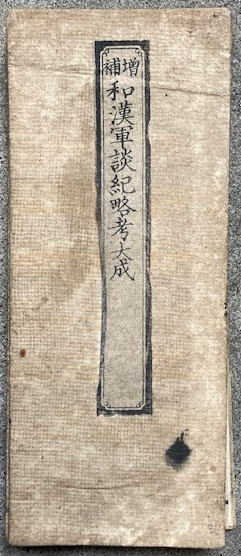 増補
和漢軍談紀略考大成